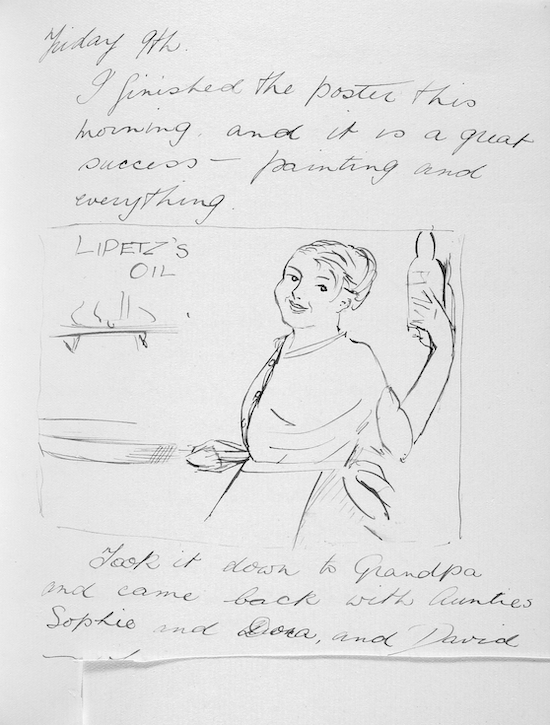 Friday 9th.
I finished the poster this
morning, and it is a great
success – painting and
everything.
LIPETZ'S
OIL
Took it down to Grandpa
and came back with Aunties
Sophie and Dora, and David